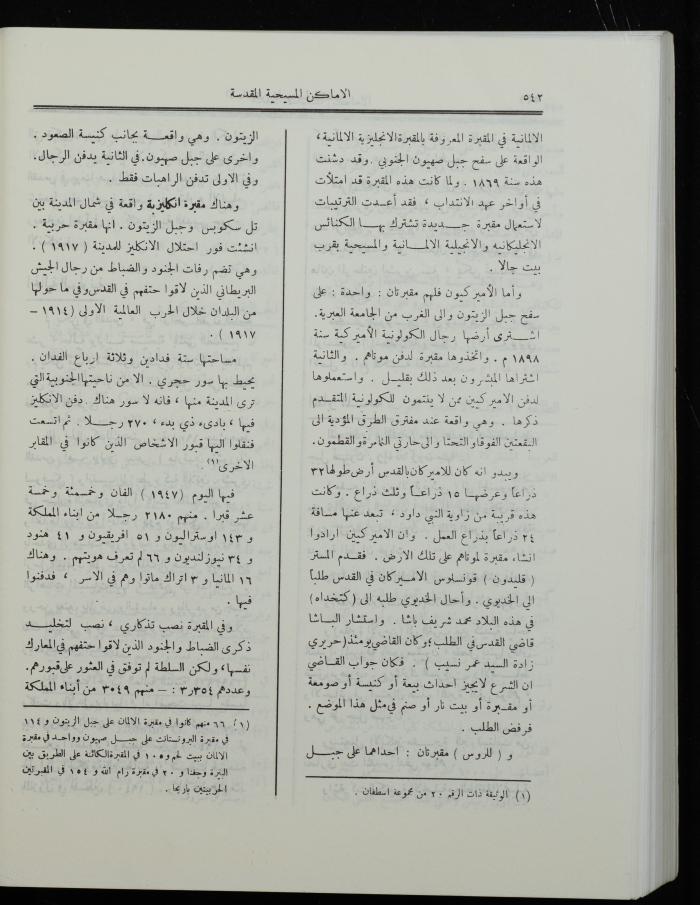 ٥٤٢
الاماكن المسيحية المقدسة
الالمانية في المقبرة المعروفة بالمقبرة الانجليزية الالمانية،
الواقعة على سفح جبل صهيون الجنوبي . وقد دشنت
هذه سنة ١٨٦٩ . ولما كانت هذه المقبرة قد امتلأت
في أواخر عهد الانتداب ، فقد أعدت الترتيبات
لاستعمال مقبرة جديدة تشترك بها الكنائس
الانجليكانيه والانجيلية الالمانية والمسيحية بقرب
بيت جالا .
وأما الأميركيون فلهم مقبرتان : واحدة : على
سفح جبل الزيتون والى الغرب من الجامعة العبرية.
اشترى أرضها رجال الكولونية الأميركية سنة
١٨٩٨ م . واتخذوها مقبرة لدفن موتاهم . والثانية
اشتراها المبشرون بعد ذلك بقليل . واستعملوها
لدفن الاميركيين ممن لا ينتمون للكولونية المتقدم
ذكرها . وهي واقعة عند مفترق الطرق المؤدية الى
البقعتين الفوقا والتحتا والى حارتي النمامرة والقطمون.
ويبدو انه كان للاميركان بالقدس أرض طولها ٣٢
ذراعاً وعرضها ١٥ ذراعاً وثلث ذراع . وكانت
هذه قريبة من زاوية النبي داود ، تبعد عنها مسافة
٢٤ ذراعاً بذراع العمل . وان الاميركيين ارادوا
انشاء مقبرة لموتاهم على تلك الارض . فقدم المستر
( قليدون ) قونسلوس الاميركان في القدس طلباً
الى الخديوي . وأحال الخديوي طلبه الى (كتخداه)
في هذه البلاد محمد شريف باشا . واستشار الباشا
قاضي القدس في الطلب ؛ وكان القاضي يومئذ (حريري
زادة السيد عمر نسيب ) . فكان جواب القاضي
ان الشرع لا يجيز احداث بيعة أو كنيسة أو صومعة
أو مقبرة أو بيت نار أو صنم في مثل هذا الموضع .
فرفض الطلب .
و ( للروس ) مقبرتان : احداهما على جبل
(١) الوثيقة ذات الرقم ٢٠ من مجموعة اسطفان .
الزيتون . وهي واقعة بجانب كنيسة الصعود .
واخرى على جبل صهيون. في الثانية يدفن الرجال.
وفي الاولى تدفن الراهبات فقط .
وهناك مقبرة انكليزية واقعة في شمال المدينة بين
تل سكوبس وجبل الزيتون . انها مقبرة حربية .
انشئت فور احتلال الانكليز للمدينة ( ١٩١٧ ) .
وهي تضم رفات الجنود والضباط من رجال الجيش
البريطاني الذين لاقوا حتفهم في القدس وفي ما حولها
من البلدان خلال الحرب العالمية الاولى (١٩١٤ –
١٩١٧ ) .
مساحتها ستة فدادين وثلاثة ارباع الفدان .
يحيط بها سور حجري . الا من ناحيتها الجنوبية التي
ترى المدينة منها ، فانه لا سور هناك . دفن الانكليز
فيها ، بادىء ذي بدء ، ٢٧٠ رجلا . ثم اتسعت
فنقلوا اليها قبور الاشخاص الذين كانوا في المقابر
الاخرى (١)
فيها اليوم (١٩٤٧ ) الفان وخمسمئة وخمسة
عشر قبرا . منهم ٢١٨٠ رجلا من ابناء المملكة
و ١٤٣ اوستراليون و ٥١ افريقيون و ٤١ هنود
و ٣٤ نيوزلنديون و ٦٦ لم تعرف هويتهم . وهناك
١٦ المانيا و ٣ اتراك ماتوا وهم في الاسر ، فدفنوا
فيها .
وفي المقبرة نصب تذكاري ، نصب لتخليد
ذكرى الضباط والجنود الذين لاقوا حتفهم في المعارك
نفسها، ولكن السلطة لم توفق في العثور على قبورهم.
وعددهم ٣٥٤ر٣ : – منهم ٣٠٤٩ من أبناء المملكة
(١) ٦٦ منهم كانوا في مقبرة الالمان على جبل الزيتون و ١١٤
في مقبرة البروتستانت على جبل صهيون وواحد في مقبرة
الالمان ببيت لحم و ١٠٥ في المقبرة الكائنة على الطريق بين
البيرة وجفنا و ٢٠ في مقبرة رام الله و ١٥٤ في المقبرتين
الحربيتين باريحا .